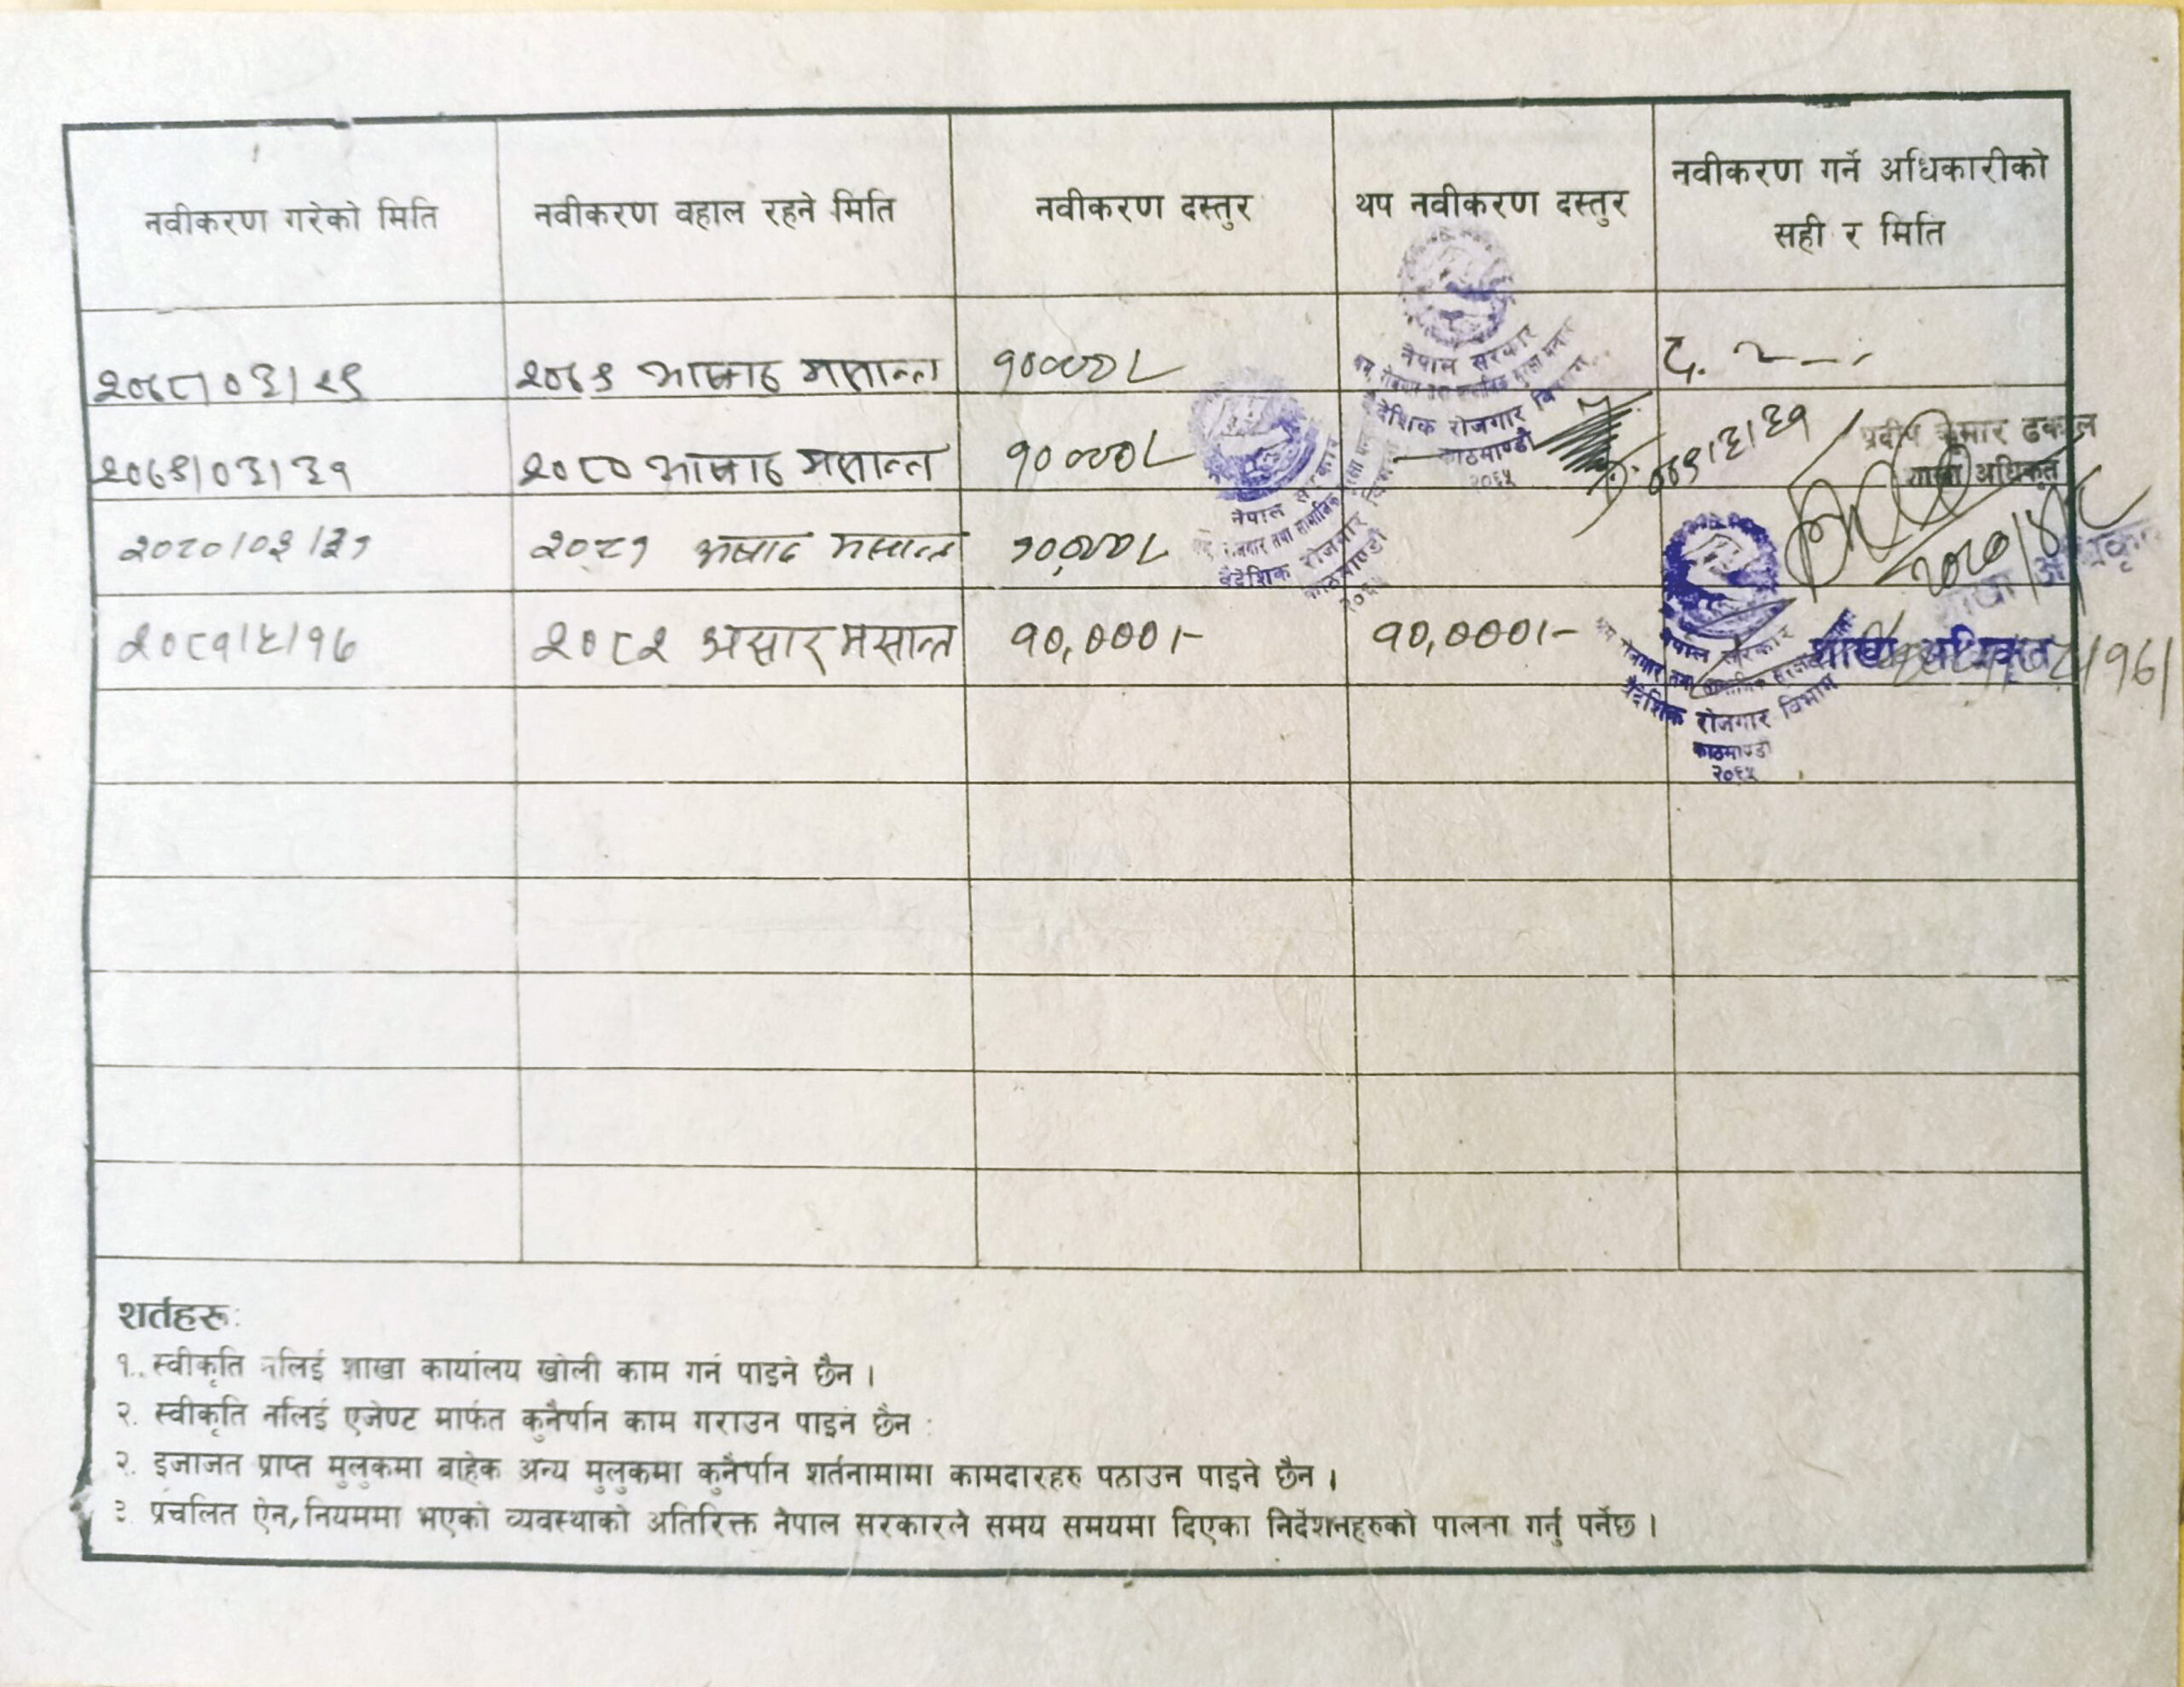 नवीकरण गरेको मिति	नवीकरण वहाल रहने मिति	नवीकरण दस्तुर	थप नवीकरण दस्तुर	नवीकरण गर्ने अधिकारीको
सही र मिति
२०७८/०३/२९	२०७९ आषाढ मसान्त	१००००/-
२०७९/०३/३१	२०८० आषाढ मसान्त	१००००/-	०७९/३/३१
२०८०/०३/३१	२०८१ अषाढ मसान्त	१०,०००/-
२०८१/६/१६	२०८२ असार मसान्त	१०,०००।-	१०,०००।-
नेपाल सरकार
वैदेशिक रोजगार विभाग
काठमाण्डौ
२०६५
नेपाल सरकार
वैदेशिक रोजगार
काठमाण्डौ
प्रदीप कुमार ढकाल
शाखा अधिकृत
नेपाल सरकार
वैदेशिक रोजगार विभाग
काठमाण्डौ
२०६५
शाखा अधिकृत
शर्तहरू:
१. स्वीकृति नलिई शाखा कार्यालय खोली काम गर्न पाइने छैन ।
२. स्वीकृति नलिई एजेण्ट मार्फत कुनैपनि काम गराउन पाइने छैन
२. इजाजत प्राप्त मुलुकमा बाहेक अन्य मुलुकमा कुनैपनि शर्तनामामा कामदारहरु पठाउन पाइने छैन ।
३. प्रचलित ऐन, नियममा भएको व्यवस्थाको अतिरिक्त नेपाल सरकारले समय समयमा दिएका निर्देशनहरुको पालना गर्नु पर्नेछ ।